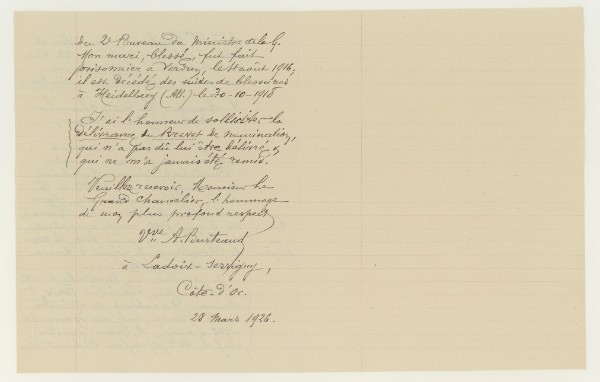 du 2e Bureau du Ministre de la G.
Mon mari, blessé, fut fait
prisonnier à Verdun, le août 1916,
il est décédé des suites de blessures
à Heidelberg (All.) le 30-10-1918
J'ai l'honneur de solliciter la
délivrance du Brevet de nomination,
qui n'a pas dû lui être délivré et
qui ne m'a jamais été remis.
Veuillez recevoir, Monsieur le
Grand Chancelier, l'hommage
de mon plus profond respect
Vve A.
à Ladoix-Serrigny,
Côte-d'Or.
28 Mars 1926.